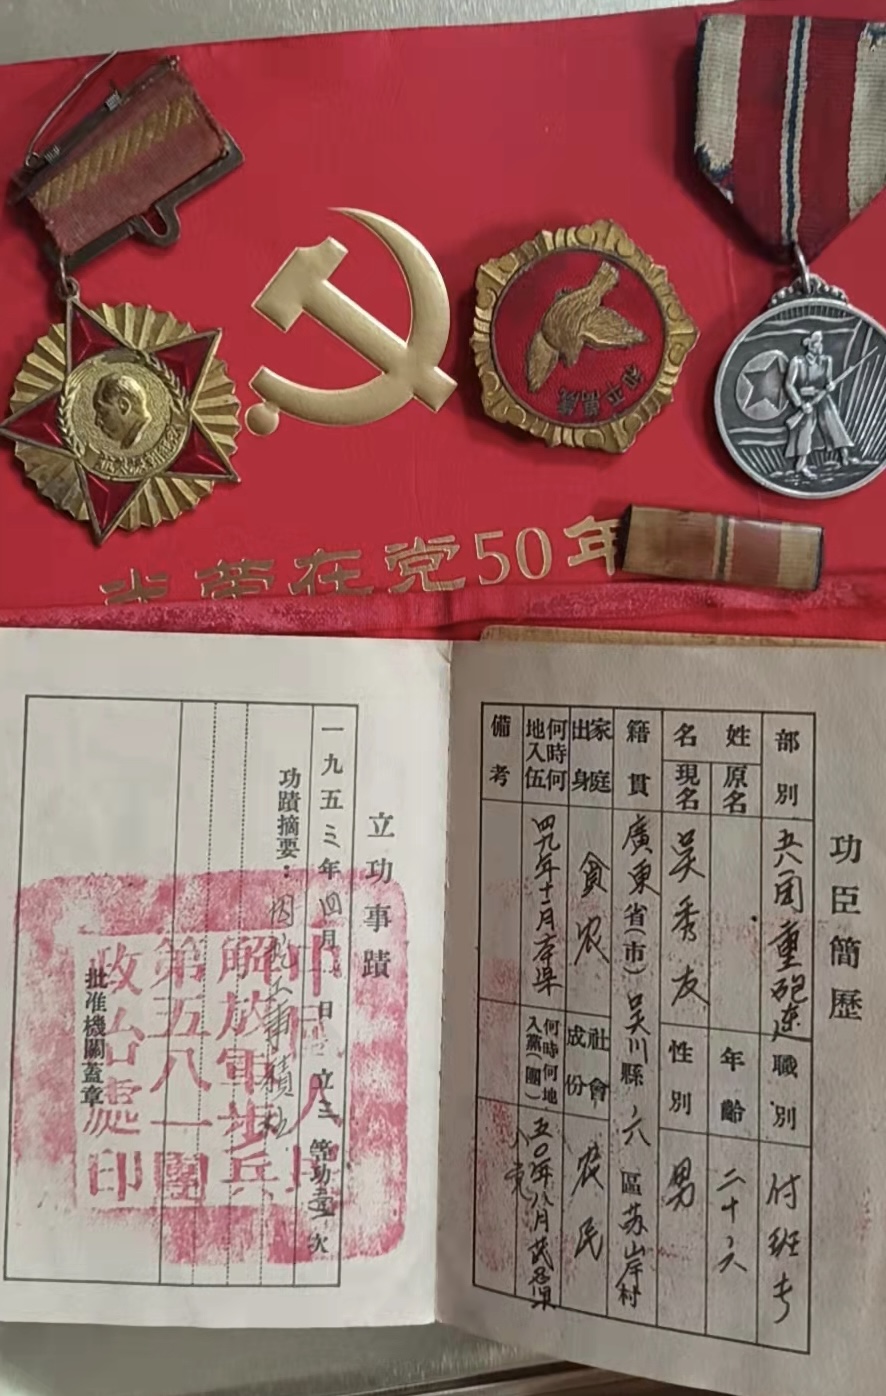 光荣在党50年
和平萬歲
功臣簡歷
部別 兵团重砲連 職別 付班长
姓名 原名 年齡 二十六
現名 吳秀友 性別 男
籍貫 廣東省(市)吴川縣 六 區 苏岸村
家庭出身 貧农 社會成份 农民
何時何地入伍 四九年十一月本県 何時何地入黨(團) 五〇年八月茂名県
備考
立功事蹟
一九五三年四月 日 立三等功壹次
功蹟摘要：
批准機關蓋章
中國人民
解放軍步兵
第五八一團
政治處印